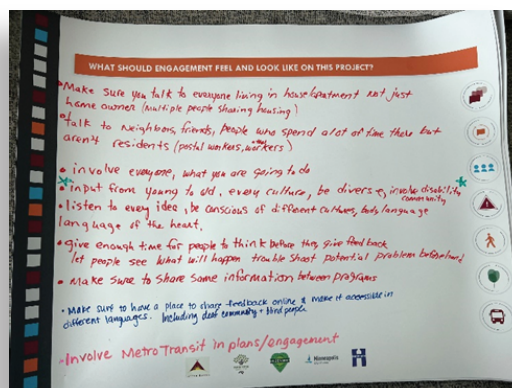 WHAT SHOULD ENGAGEMENT FEEL AND LOOK LIKE ON THIS PROJECT?
• Make sure you talk to everyone living in house/apartment not just
home owner (multiple people sharing housing)
• talk to neighbors, friends, people who spend alot of time there but
aren't residents (postal workers, workers)
• involve everyone, what you are going to do
• input from young to old, every culture, be diverse, involve disability
community
• listen to every idea, be conscious of different cultures, body language
language of the heart.
• give enough time for people to think before they give feed back
let people see what will happen trouble shoot potential problem beforehand
• Make sure to share same information between programs
• Make sure to have a place to share feedback online & make it accessible in
different languages. Including deaf community + blind people
• Involve Metro Transit in plans/engagement
Minneapolis